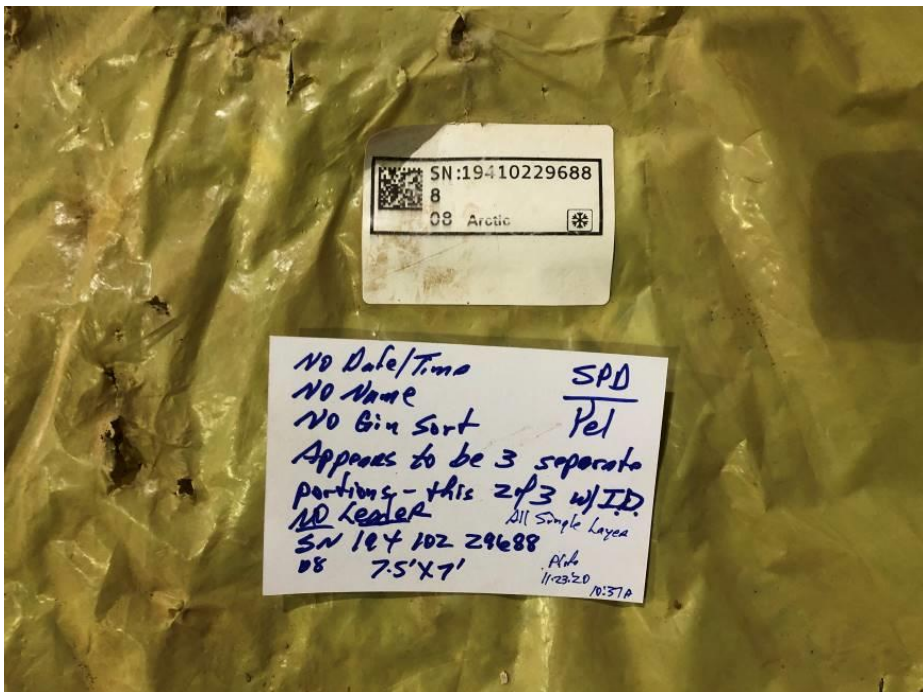 SN:19410229688
8
08 Arctic
NO Date/Time
NO Name
NO Gin Sort
SPD
Yel
Appears to be 3 separate
portions - this 2 of 3 w/ I.D.
NO Leader
All Single Layer
SN 194 102 29688
08 7.5'X7'
11-23-20
10:37A